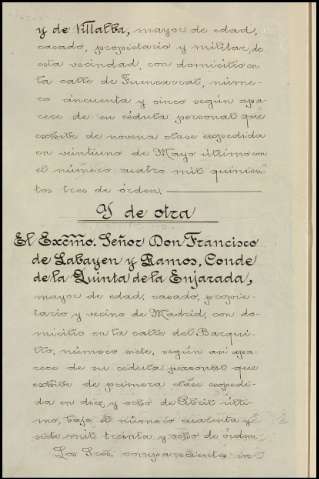 y de Villalba, mayor de edad,
casado, propietario y militar, de
esta vecindad, con domicilio en
la calle de Fuencarral, núme-
ro cincuenta y cinco según apa-
rece de su cédula personal que
exhibe de novena clase expedida
en veintiuno de Mayo último con
el número cuatro mil quinien-
tos tres de órden.
Y de otra
El Excmo. Señor Don Francisco
de Labayen y Ramos, Conde
de la Quinta de la Enjarada,
mayor de edad, casado, propie-
tario y vecino de Madrid, con do-
micilio en la calle del Barqui-
llo, número siete, según así apa-
rece de su cédula personal que
exhibe de primera clase expedi-
da en diez y ocho de Abril últi-
mo, bajo el número cuarenta y
siete mil treinta y ocho de órden.
Los Sres. comparecientes in-